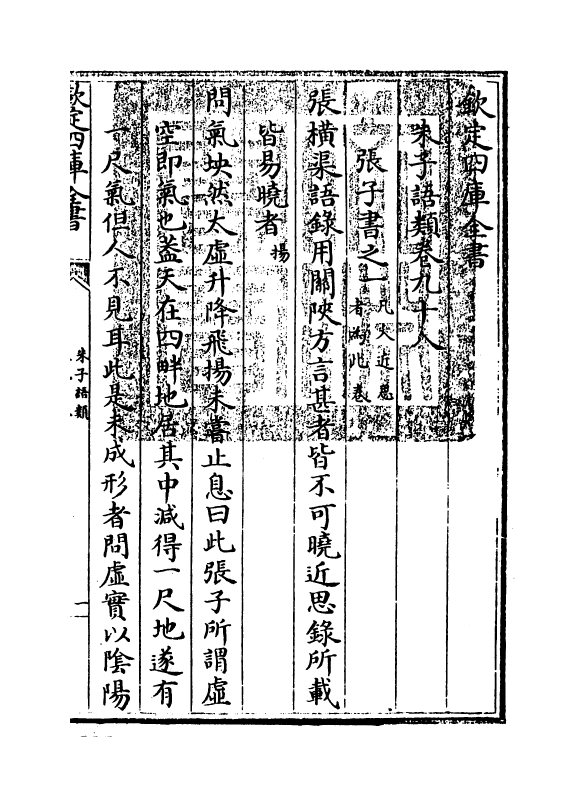 欽定四庫全書
朱子語類卷九十八
張子書之一凡入近思者為此卷
張橫渠語錄用關陜方言甚者皆不可曉近思錄所載
皆易曉者揚
問氣坱然太虛升降飛揚未嘗止息曰此張子所謂虛
空即氣也葢天在四畔地居其中減得一尺地遂有
一尺氣但人不見耳此是未成形者問虛實以陰陽
欽定四庫全書
朱子語類
一